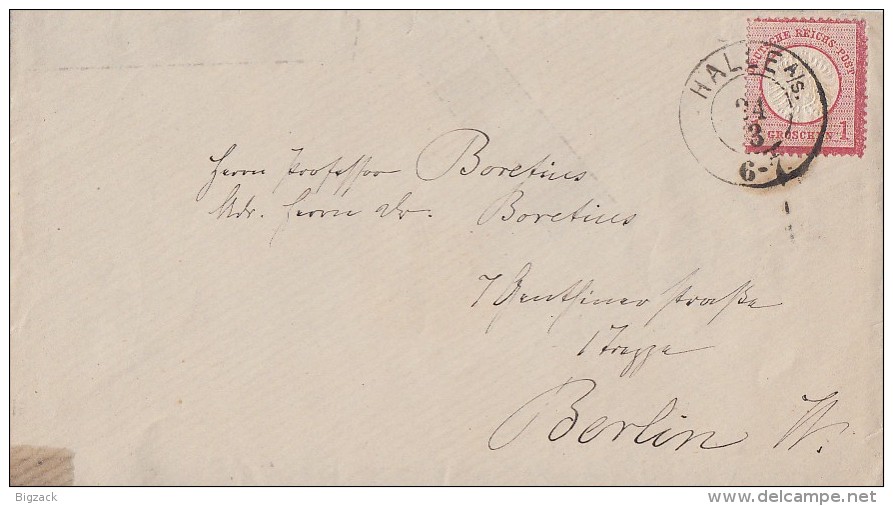 DEUTSCHE REICHS-POST
1 GROSCHEN 1
HALLE A/S.
24
3
6-7
Herrn Professor Boretius
Adr. Herrn Dr. Boretius
7 Genthiner Straße
1 Treppe
Berlin W.
Bigzack
www.delcampe.net